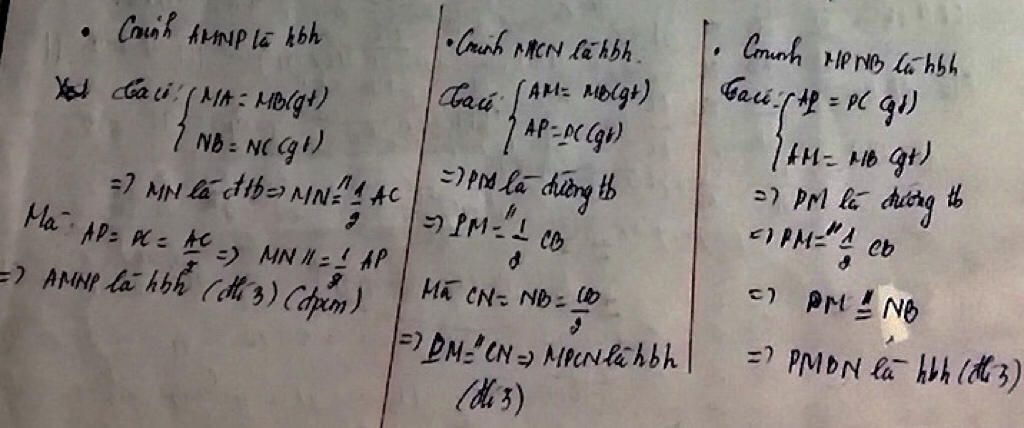 • Cminh AMNP là hbh
Ta có: { MA = MB (gt)
NB = NC (gt)
=> MN là đtb => MN =// 1/2 AC
Mà AP = PC = AC/2 => MN // = 1/2 AP
=> AMNP là hbh (dh 3) (đpcm)
• Cminh MPCN là hbh.
Ta có: { AM = MB (gt)
AP = PC (gt)
=> PM là đường tb
=> PM =// 1/2 CB
Mà CN = NB = CB/2
=> PM =// CN => MPCN là hbh
(dh 3)
• Cminh MPNB là hbh
Ta có: { AP = PC (gt)
AM = MB (gt)
=> PM là đường tb
=> PM =// 1/2 CB
=> PM =// NB
=> PMBN là hbh (dh 3)